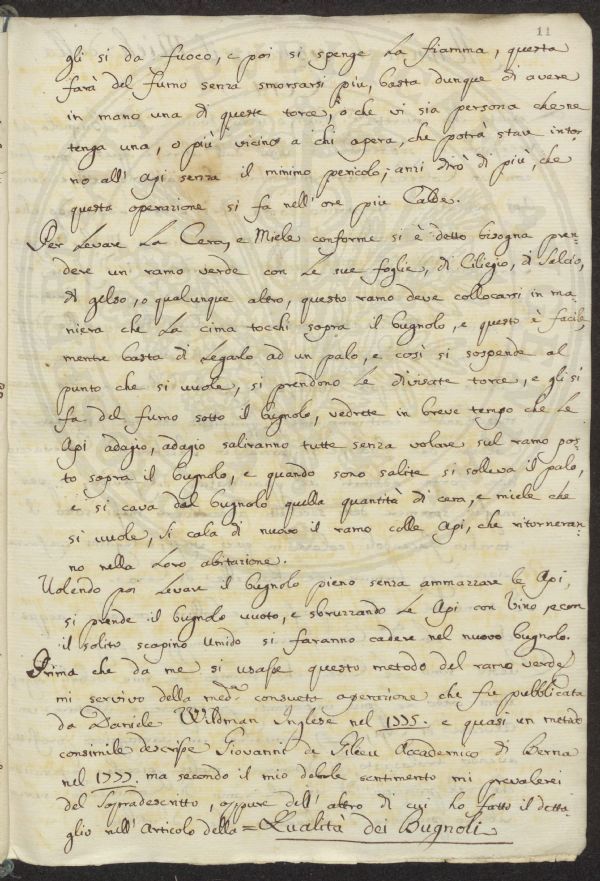 11
gli si da fuoco, e poi si spenge La fiamma, questa
farà del fumo senza smorsarsi più, basta dunque di avere
in mano una di queste torce, ò che vi sia persona che ne
tenga una, o più vicino a chi opera, che potrà stare intor=
no all' Api senza il minimo pericolo; anzi dirò di più, che
questa operazione si fa nell' ore più Calde.
Per Levare La Cera, e Miele conforme si è detto bisogna pren=
dere un ramo verde con Le sue foglie, di Ciliegio, di Salcio,
di gelso, o qualunque altro, questo ramo deve collocarsi in ma=
niera che La cima tocchi sopra il bugnolo, e questo è facile,
mentre basta di Legarlo ad un palo, e così si sospende al
punto che si vuole, si prendono Le divisate torce, e gli si
fa del fumo sotto il bugnolo, vedrete in breve tempo che Le
Api adagio, adagio saliranno tutte senza volare sul ramo pos=
to sopra il bugnolo, e quando sono salite si solleva il palo,
e si cava dal bugnolo quella quantità di cera, e miele che
si vuole, si cala di nuovo il ramo colle Api, che ritorneran=
no nella Loro abitazione.
Volendo poi Levare il bugnolo pieno senza ammazzare le Api,
si prende il bugnolo vuoto, e sbruzzando Le Api con Vino, e con
il solito scopino umido si faranno cadere nel nuovo bugnolo.
Prima che da me si usasse questo metodo del ramo verde
mi servivo della med.a consueta operazione che fu pubblicata
da Daniele Wildman Inglese nel 1775. e quasi un metodo
consimile descrisse Giovanni de Accademico di Berna
nel 1777. ma secondo il mio debole sentimento mi prevalerei
del Sopradescritto, oppure dell' altro di cui ho fatto il detta=
glio nell' Articolo della = Qualità dei Bugnoli